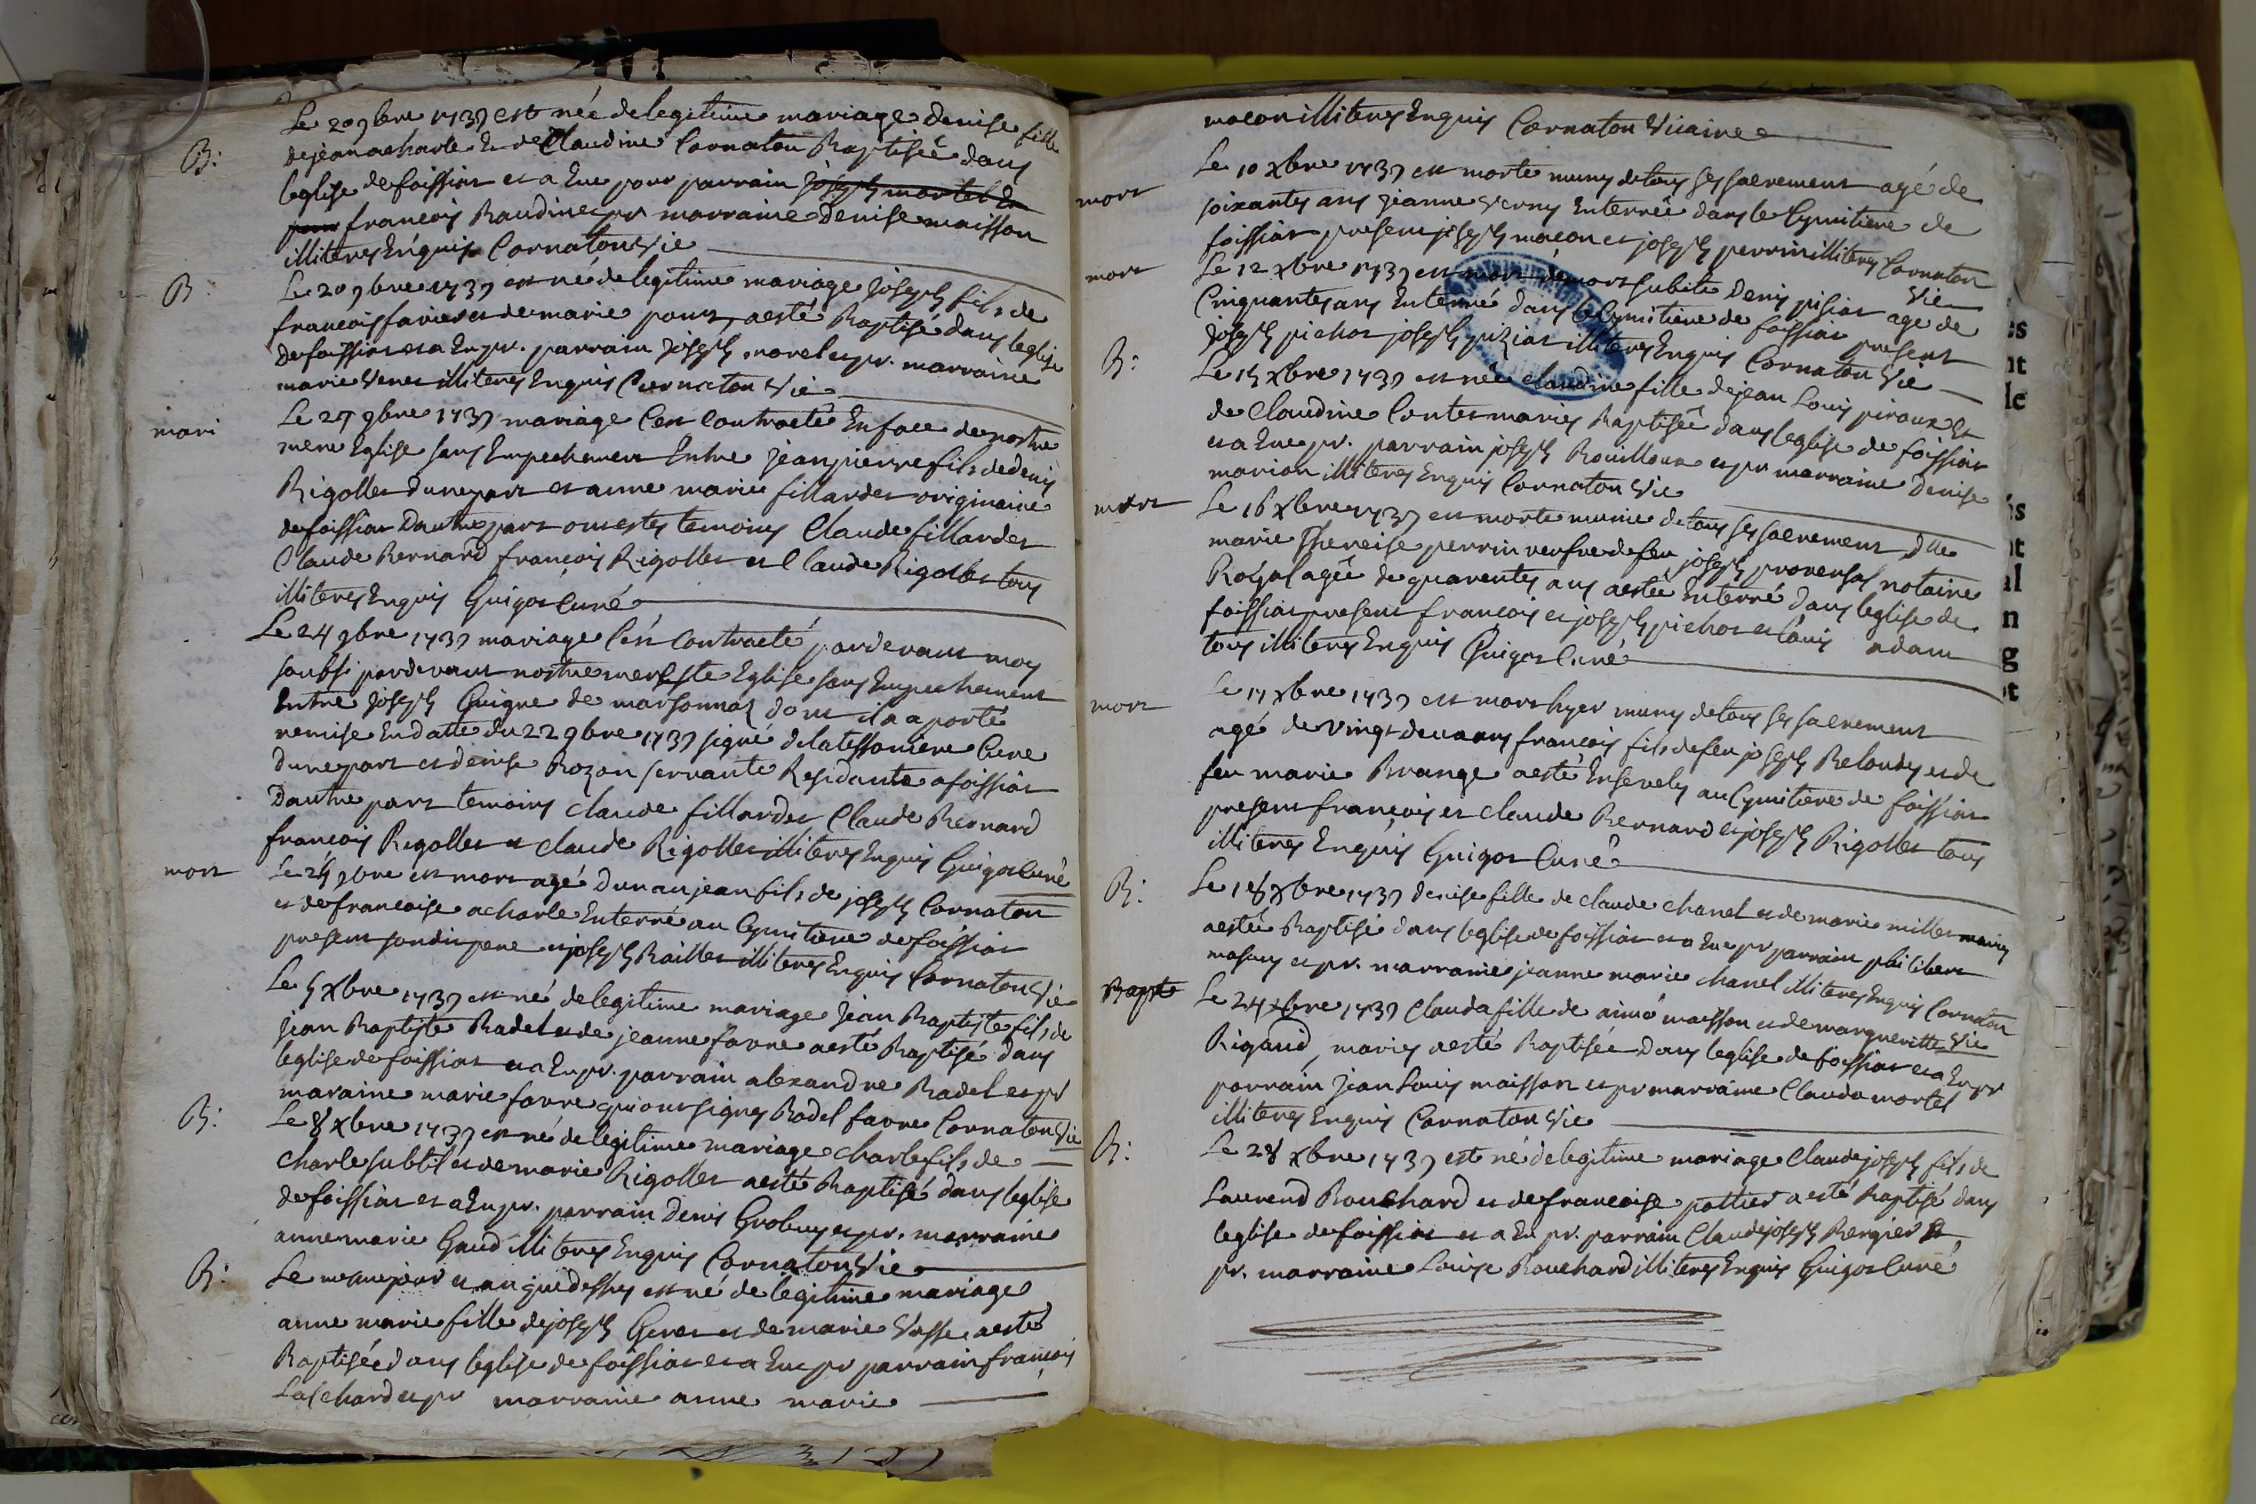 Le 20 9bre 1737 est née de legitime mariage Denise fille
B: de jean acharle Et de Claudine Cornaton Baptisée dans
leglise de foissiat et a Eue pour parrain joseph mortel Et
pour francois Baudinet pr marraine Denise maisson
illiteres Enquis Cornaton Vic
B Le 20 9bre 1737 est né de legitime mariage joseph fils de
francois favier et de marie pont, a esté Baptisé dans leglise
de foissiat et a Eu pr. parrain joseph morel et pr. marraine
marie Venet illiteres Enquis Cornaton Vic
mari Le 24 9bre 1737 mariage C'est Contracté En face de nostre
mere Eglise sans Empechement Entre jean pierre fils de denis
Rigollet dune part et anne marie fillardet originaire
de foissiat Dautre part ont estes temoins Claude fillardet
Claude Bernard francois Rigollet et Claude Rigollet tous
illiteres Enquis Guigot Curé
Le 24 9bre 1737 mariage C'est Contracté pardevant moy
soubsi pardevant nostre mere Ste Eglise sans Empechement
Entre joseph Guigne de marsonnaz dont il a aporté
remise En datte du 22 9bre 1737 signé delatessoniere Curé
dune part et denise Rozon servante Residante a foissiat
Dautre part temoins claude fillardet Claude Bernard
francois Rigollet et claude Rigollet illiteres Enquis Guigot Curé
mort Le 24 9bre est mort agé dun an jean fils de joseph Cornaton
et de francoise acharle Enterré au Cymitiere de foissiat
present sondit pere et joseph Baillet illiteres Enquis Cornaton Vic
Le 5 Xbre 1737 est né de legitime mariage jean Baptiste fils de
jean Baptiste Radel et de jeanne favre a esté Baptisé dans
leglise de foissiat et a Eu pr. parrain alexandre Radel et pr
maraine marie favre qui ont signes Radel favre Cornaton Vic
B: Le 8 Xbre 1737 est né de legitime mariage charle fils de
charle subtil et de marie Rigollet a esté Baptisé dans leglise
de foissiat et a Eu pr. parrain Denis Grobuy et pr. marraine
anne marie Gaud illiteres Enquis Cornaton Vic
B: Le mesme jour et an que dessus est né de legitime mariage
anne marie fille de joseph Geret et de marie Vasse a esté
Baptisée dans leglise de foissiat et a Eue pr parrain francois
Laschard et pr marraine anne marie
macon illiteres Enquis Cornaton Vicaire
mort Le 10 Xbre 1737 est morte muny de tous ses sacrement agé de
soixantes ans jeanne Verny Enterrée dans le Cymitiere de
foissiat present joseph macon et joseph perrin illiteres Cornaton
Vic
mort Le 12 Xbre 1737 est mort de mort subite Denis age de
Cinquantes ans Enterré dans le Cymitiere de foissiat present
joseph pichot joseph illiteres Enquis Cornaton Vic
B: Le 15 Xbre 1737 est née claudine fille de jean Louis piroux Et
de Claudine Contet maries Baptisée dans leglise de foissiat
et a Eue pr. parrain joseph Rouilloux et pr marraine Denise
marion illiteres Enquis Cornaton Vic
mort Le 16 Xbre 1737 est morte munie de tous ses sacrement Dlle
marie Thereise perrin veufve de feu joseph provensal notaire
Royal agée de quarentes ans a estée Enterré dans leglise de
foissiat present francois et joseph pichot et Louis adam
tous illiteres Enquis Guigot Curé
mort Le 17 Xbre 1737 est mort hyer muny de tous ses sacrement
agé de vingt deux ans francois fils de feu joseph Beloudy et de
feu marie Brange a esté Ensevely au Cymitiere de foissiat
present francois et claude Bernard et joseph Rigollet tous
illiteres Enquis Guigot Curé
B: Le 18 Xbre 1737 denise fille de claude chanel et de marie millet maries
a estée Baptisée dans leglise de foissiat et a Eue pr parrain philibert
et pr. marraine jeanne marie chanel illiteres Enquis Cornaton
Vic
Bapt Le 24 Xbre 1737 Clauda fille de aimé maisson et de margueritte
Rigaud maries a esté Baptisée Dans leglise de foissiat et a Eu pr
parrain jean Louis maisson et pr marraine Clauda mortel
illiteres Enquis Cornaton Vic
B: Le 28 Xbre 1737 est né de legitime mariage Claude joseph fils de
Laurend Bouchard et de francoise pottier a esté Baptisé dans
leglise de foissiat et a Eu pr. parrain Claude joseph Bergier Et
pr. marraine Louise Bouchard illiteres Enquis Guigot Curé